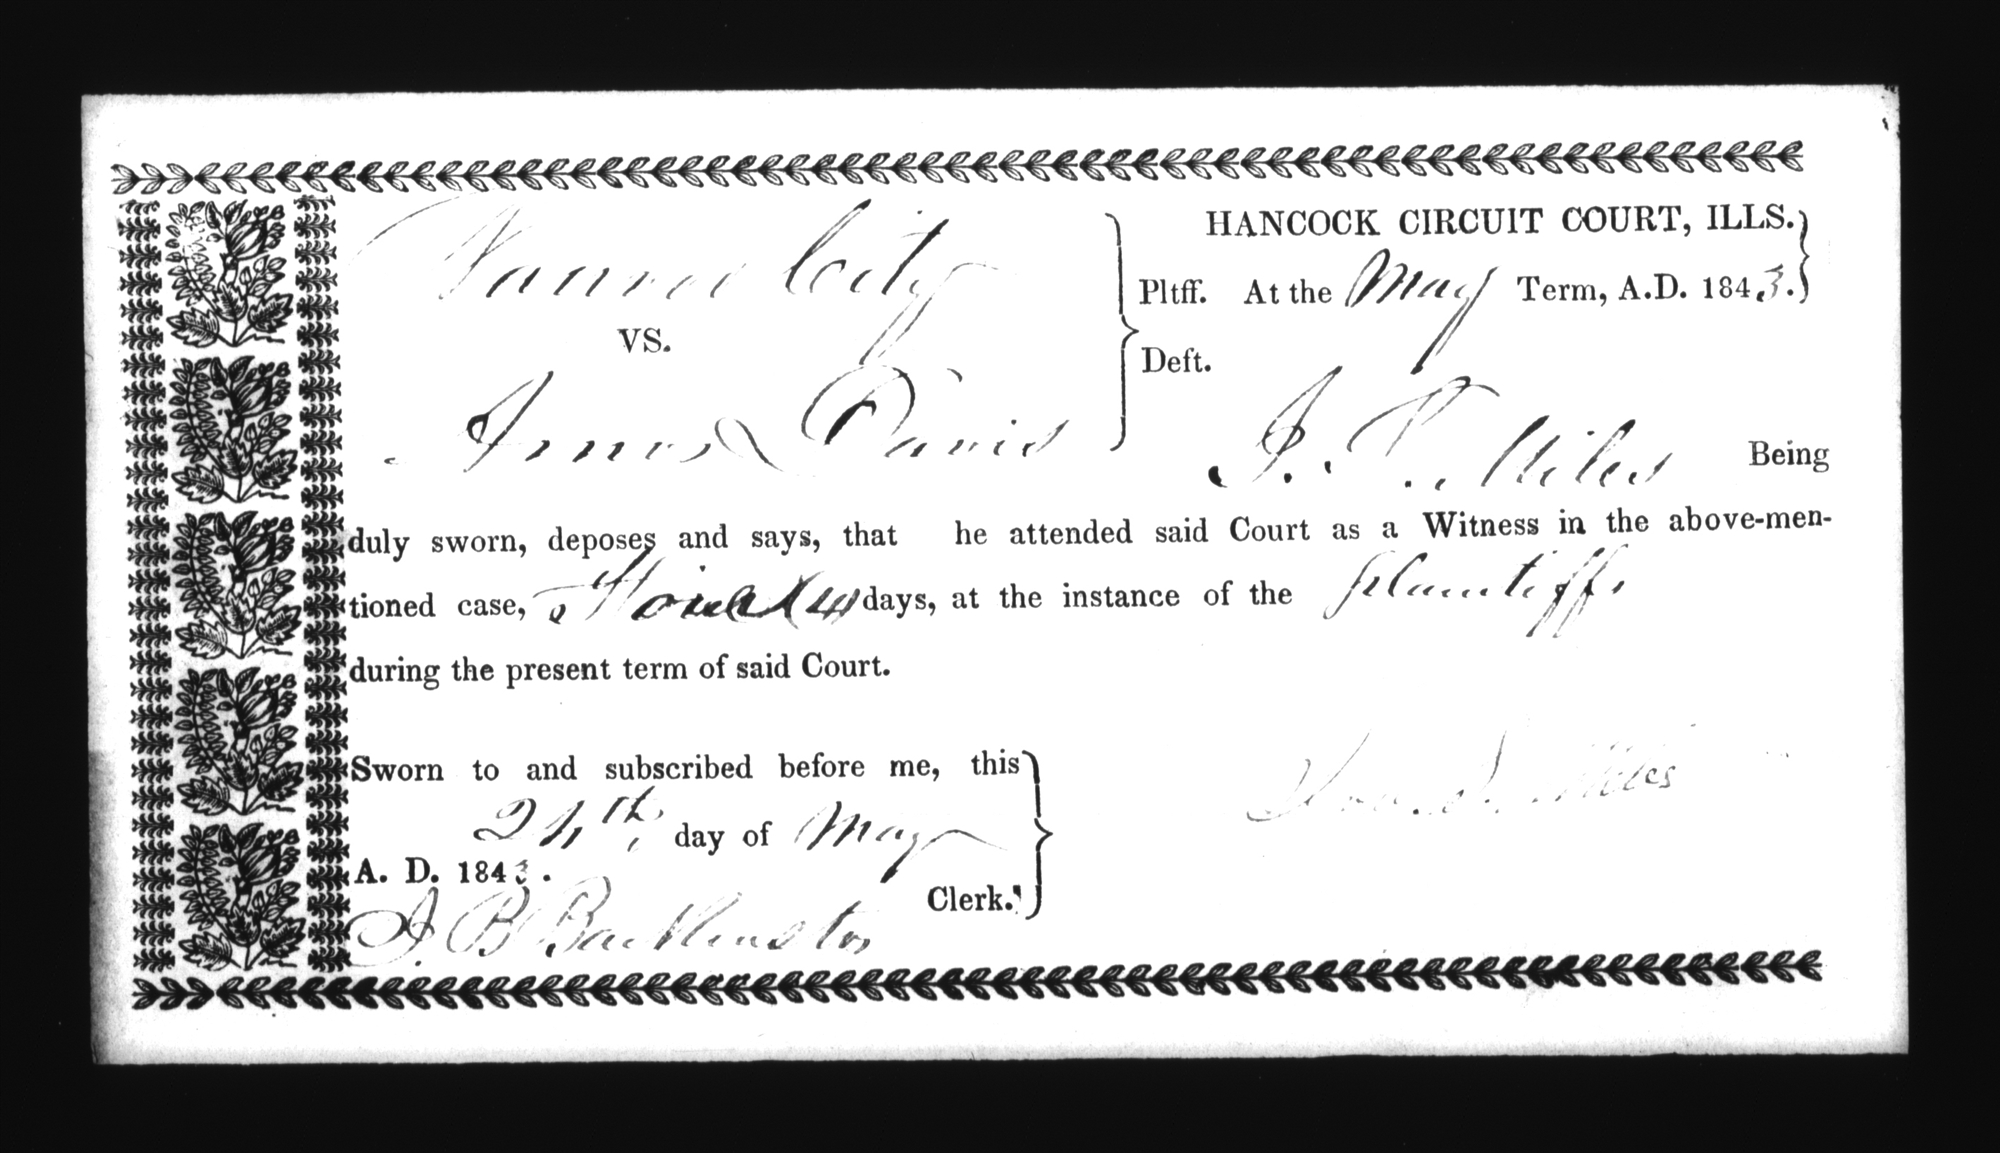 Nauvoo City
HANCOCK CIRCUIT COURT, ILLS.
Pltff. At the May Term, A.D. 1843.
VS.
Deft.
Amos Davis
J. T. Miles Being
duly sworn, deposes and says, that he attended said Court as a Witness in the above-men-
tioned case, days, at the instance of the plaintiff
during the present term of said Court.
Sworn to and subscribed before me, this
24th day of May
A. D. 1843.
Clerk.
J. B. Backenstos
Miles